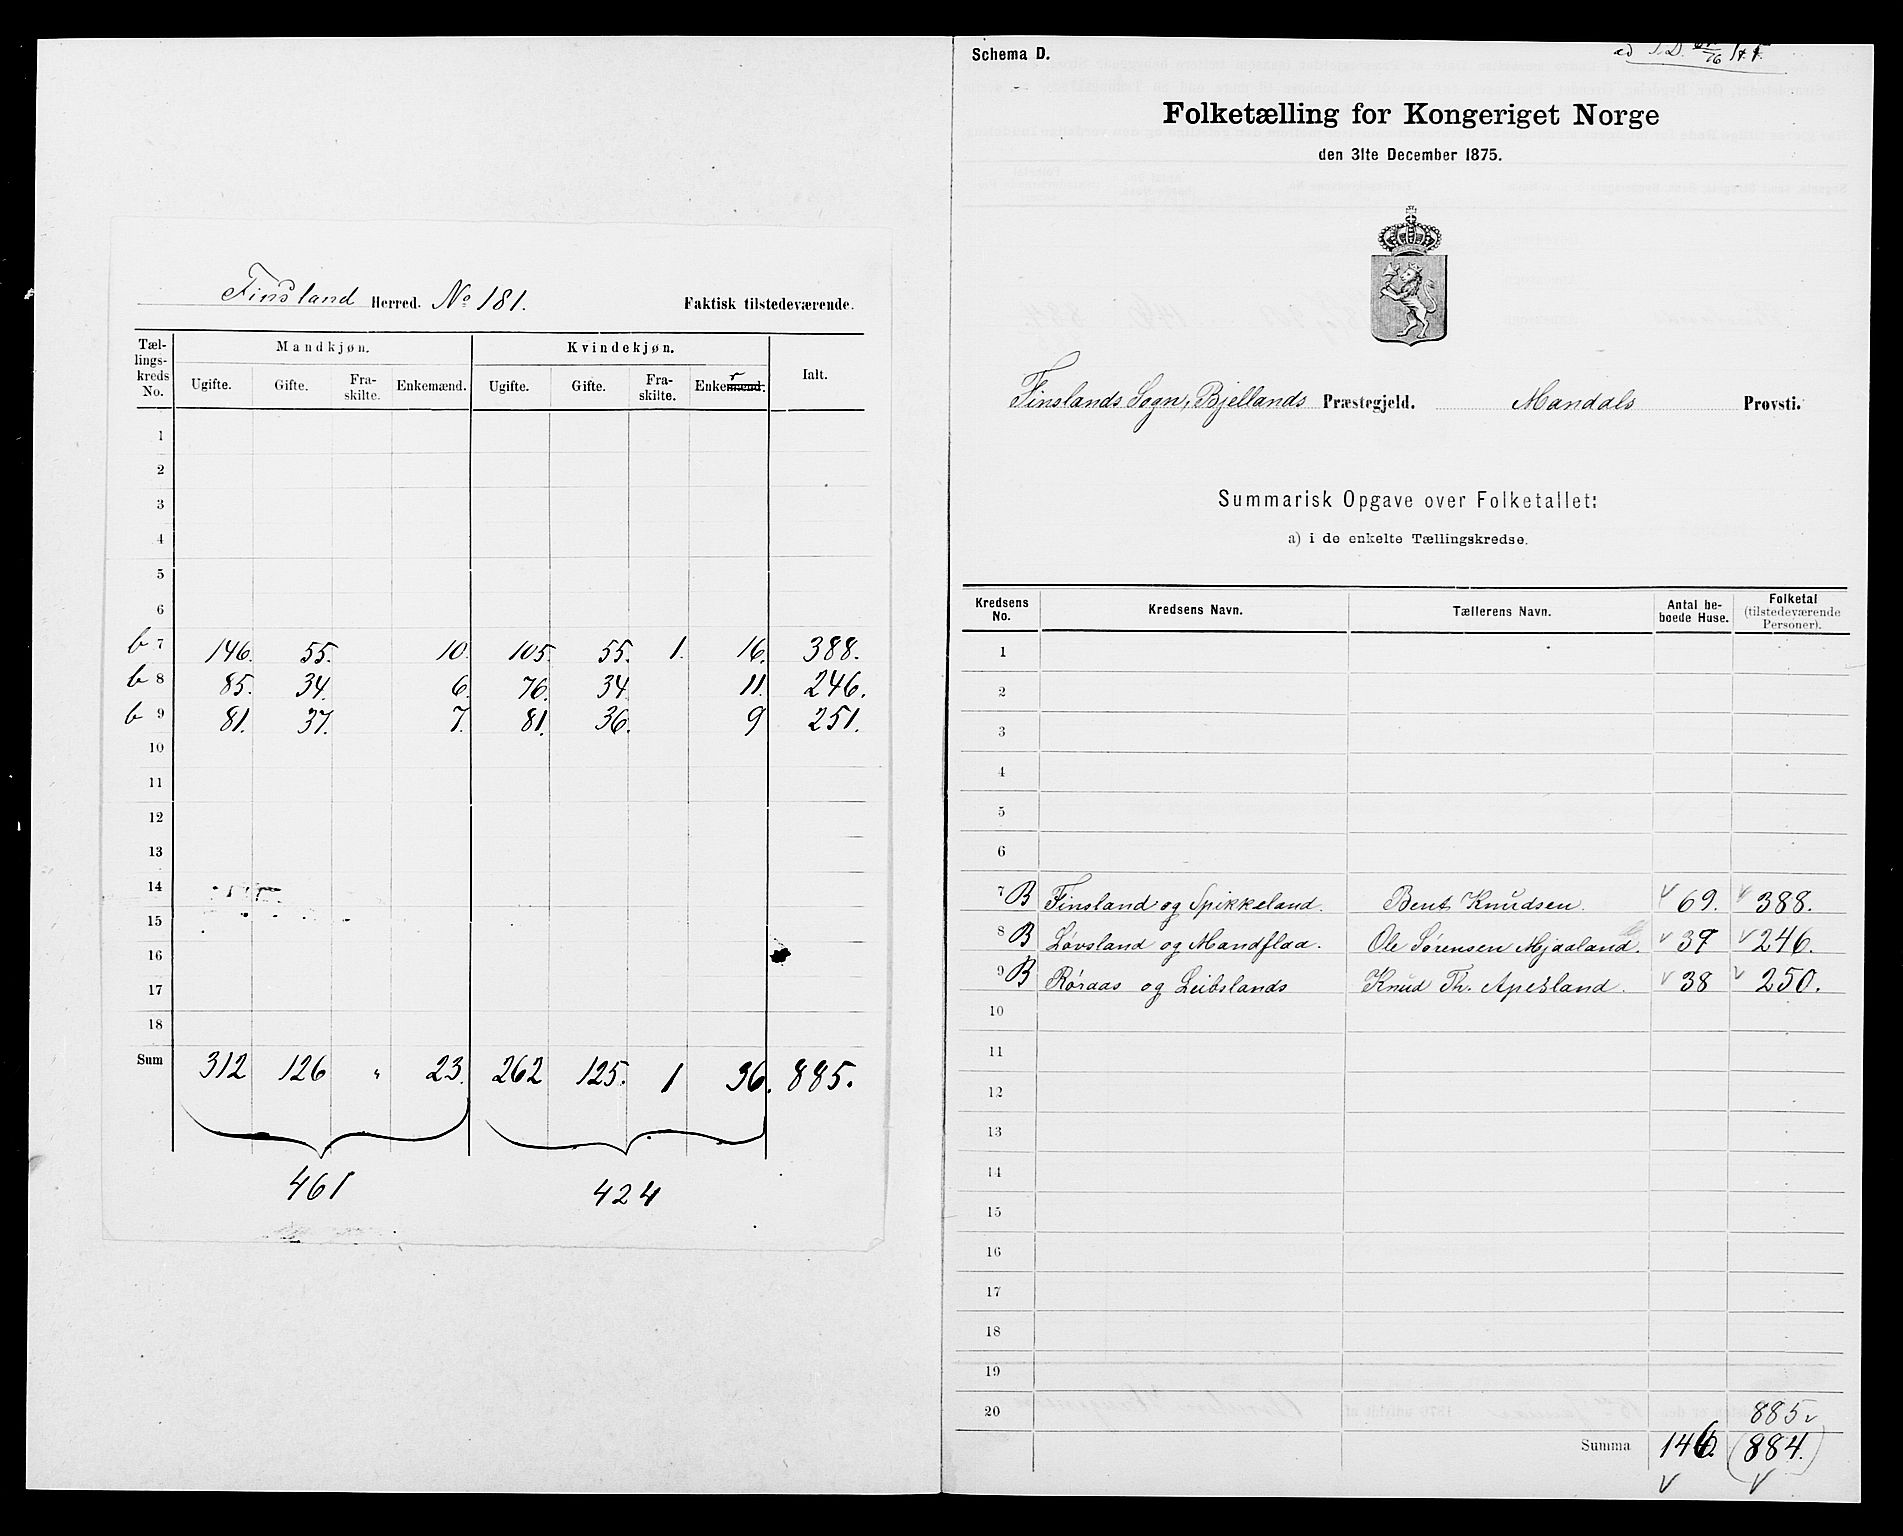 Finsland Herred. No 181. Faktisk tilstedeværende.
Tæl-lings-kreds No. Mandkjøn. Kvindekjøn. Ialt.
Ugifte. Gifte. Fra-skilte. Enkemænd. Ugifte. Gifte. Fra-skilte. Enkemænd. r
1
2
3
4
5
6
b 7 146. 55. 10. 105. 55. 1. 16. 388.
b 8 85. 34. 6. 76. 34 11. 246.
b 9 81. 37. 7. 81. 36. 9 251.
10
11
12
13
14
15
16
17
18
Sum 312 126 " 23. 262 125. 1 36. 885.
461 424
Schema D.
Folketælling for Kongeriget Norge
den 31te December 1875.
Finslands Sogn, Bjellands Præstegjeld. Mandals Provsti.
Summarisk Opgave over Folketallet:
a) i de enkelte Tællingskredse.
Kredsens No. Kredsens Navn. Tællerens Navn. Antal be-boede Huse. Folketal (tilstedeværende Personer).
1
2
3
4
5
6
7 B Finsland og Spikkeland. Bent Knudsen. 69. 388.
8 B Løvsland og Mandflaa. Ole Sørensen Mjaaland. 39 246.
9 B Røraas og Leibslands Knud Th. Apesland. 38 250.
10
11
12
13
14
15
16
17
18
19
20 885
Summa 146. (884.)